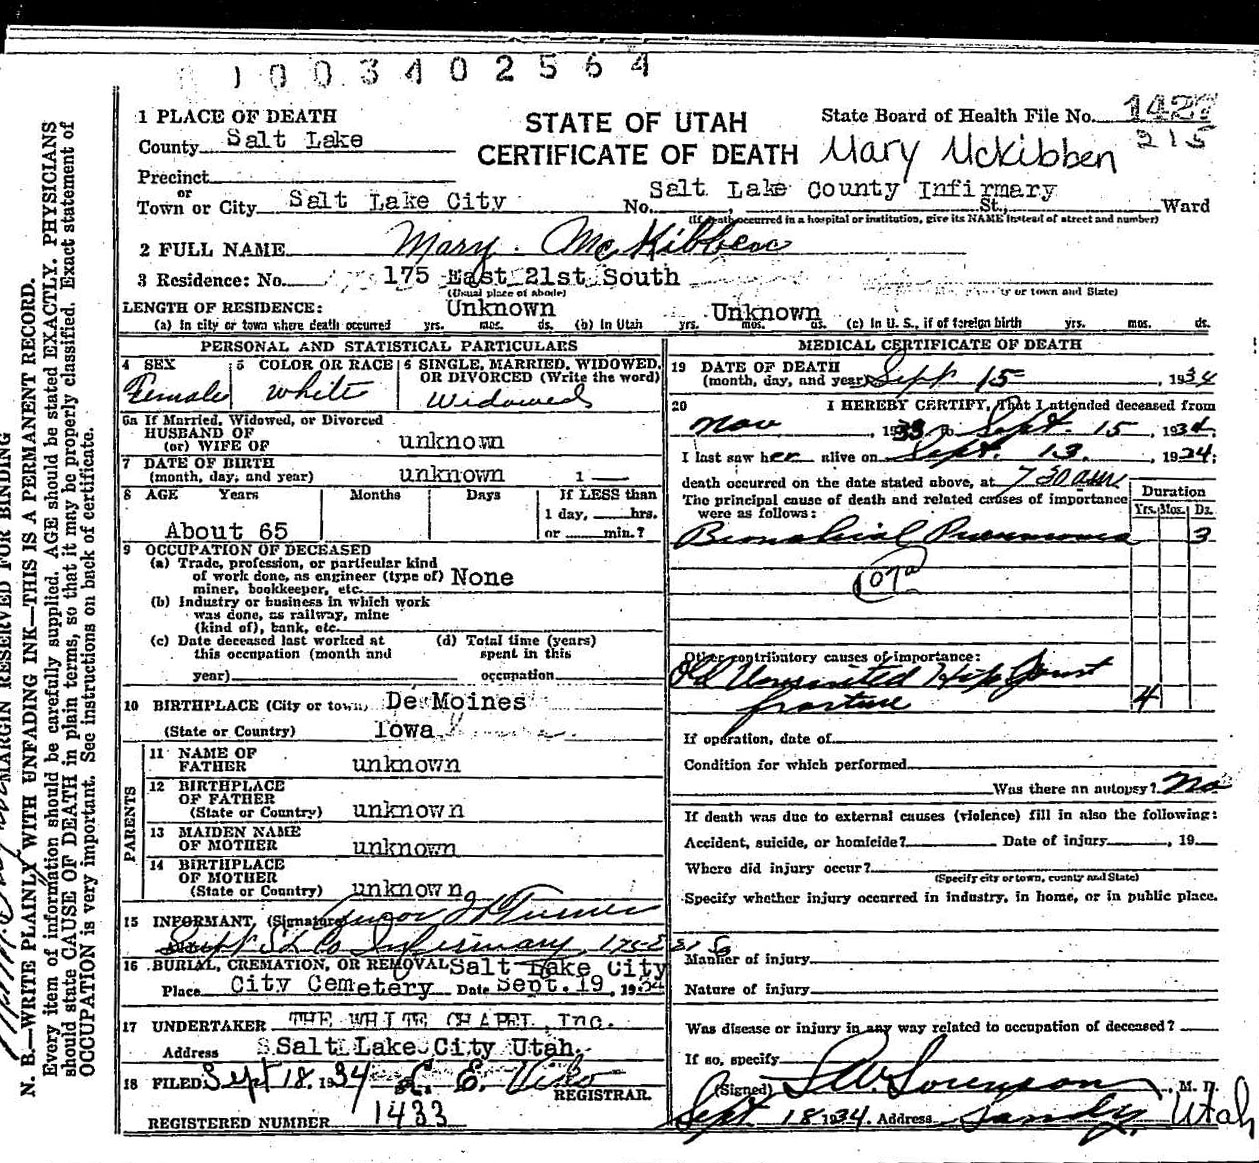 01003402564
1 PLACE OF DEATH
County Salt Lake
STATE OF UTAH
CERTIFICATE OF DEATH
State Board of Health File No. 1427
215
Mary McKibben
Precinct
or
Town or City Salt Lake City No. Salt Lake County Infirmary St., Ward
(If death occurred in a hospital or institution, give its NAME instead of street and number)
2 FULL NAME Mary McKibben
3 Residence: No. 175 East 21st South
(Usual place of abode) or town and State)
LENGTH OF RESIDENCE: Unknown Unknown
(a) In city or town where death occurred yrs. mos. ds. (b) In Utah yrs. mos. ds. (c) In U. S., if of foreign birth yrs. mos. ds.
PERSONAL AND STATISTICAL PARTICULARS
4 SEX
Female
5 COLOR OR RACE
White
6 SINGLE, MARRIED, WIDOWED,
OR DIVORCED (Write the word)
Widowed
6a If Married, Widowed, or Divorced
HUSBAND OF
(or) WIFE OF unknown
7 DATE OF BIRTH
(month, day, and year) unknown 1
8 AGE Years Months Days If LESS than
1 day, hrs.
or min.?
About 65
9 OCCUPATION OF DECEASED
(a) Trade, profession, or particular kind
of work done, as engineer (type of)
miner, bookkeeper, etc. None
(b) Industry or business in which work
was done, as railway, mine
(kind of), bank, etc.
(c) Date deceased last worked at
this occupation (month and
year)
(d) Total time (years)
spent in this
occupation
10 BIRTHPLACE (City or town) De Moines
(State or Country) Iowa
PARENTS
11 NAME OF
FATHER unknown
12 BIRTHPLACE
OF FATHER
(State or Country) unknown
13 MAIDEN NAME
OF MOTHER unknown
14 BIRTHPLACE
OF MOTHER
(State or Country) unknown
15 INFORMANT, (Signature) Turner
Supt S L Co Infirmary 175 E 21 So
16 BURIAL, CREMATION, OR REMOVAL Salt Lake City
Place City Cemetery Date Sept. 19, 1934
17 UNDERTAKER THE WHITE CHAPEL, Inc.
Address Salt Lake City Utah.
18 FILED Sept 18, 1934 C. E. Viko
REGISTRAR.
REGISTERED NUMBER 1433
MEDICAL CERTIFICATE OF DEATH
19 DATE OF DEATH
(month, day, and year) Sept 15, 1934
20 I HEREBY CERTIFY, That I attended deceased from
Nov, 1933 to Sept. 15, 1934,
I last saw her alive on Sept. 13, 1934;
death occurred on the date stated above, at 7 30 am
The principal cause of death and related causes of importance
were as follows:
Duration
Yrs. Mos. Ds.
Bronchial Pneumonia 3
107a
Other contributory causes of importance:
Old Ununited Hip Joint
fracture 4
If operation, date of
Condition for which performed
Was there an autopsy? No
If death was due to external causes (violence) fill in also the following:
Accident, suicide, or homicide? Date of injury, 19
Where did injury occur?
(Specify city or town, county and State)
Specify whether injury occurred in industry, in home, or in public place.
Manner of injury
Nature of injury
Was disease or injury in any way related to occupation of deceased?
If so, specify
(Signed) Sorenson, M. D.
Sept 18 1934. Address Sandy, Utah
MARGIN RESERVED FOR BINDING
N. B.—WRITE PLAINLY WITH UNFADING INK—THIS IS A PERMANENT RECORD.
Every item of information should be carefully supplied. AGE should be stated EXACTLY. PHYSICIANS
should state CAUSE OF DEATH in plain terms, so that it may be properly classified. Exact statement of
OCCUPATION is very important. See instructions on back of certificate.